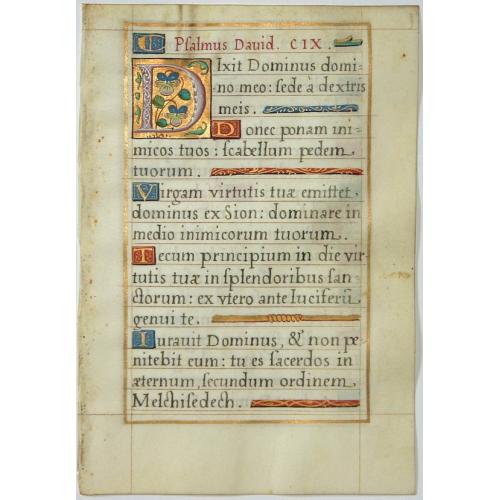 Psalmus David. CIX.
DIxit Dominus domi-
no meo: sede à dextris
meis.
Donec ponam ini-
micos tuos: scabellum pedem
tuorum.
Virgam virtutis tuæ emittet
dominus ex Sion: dominare in
medio inimicorum tuorum.
Tecum principium in die vir-
tutis tuæ in splendoribus san-
ctorum: ex vtero ante luciferũ
genui te.
Iurauit Dominus, & non pe-
nitebit eum: tu es sacerdos in
æternum, secundum ordinem
Melchisedech.